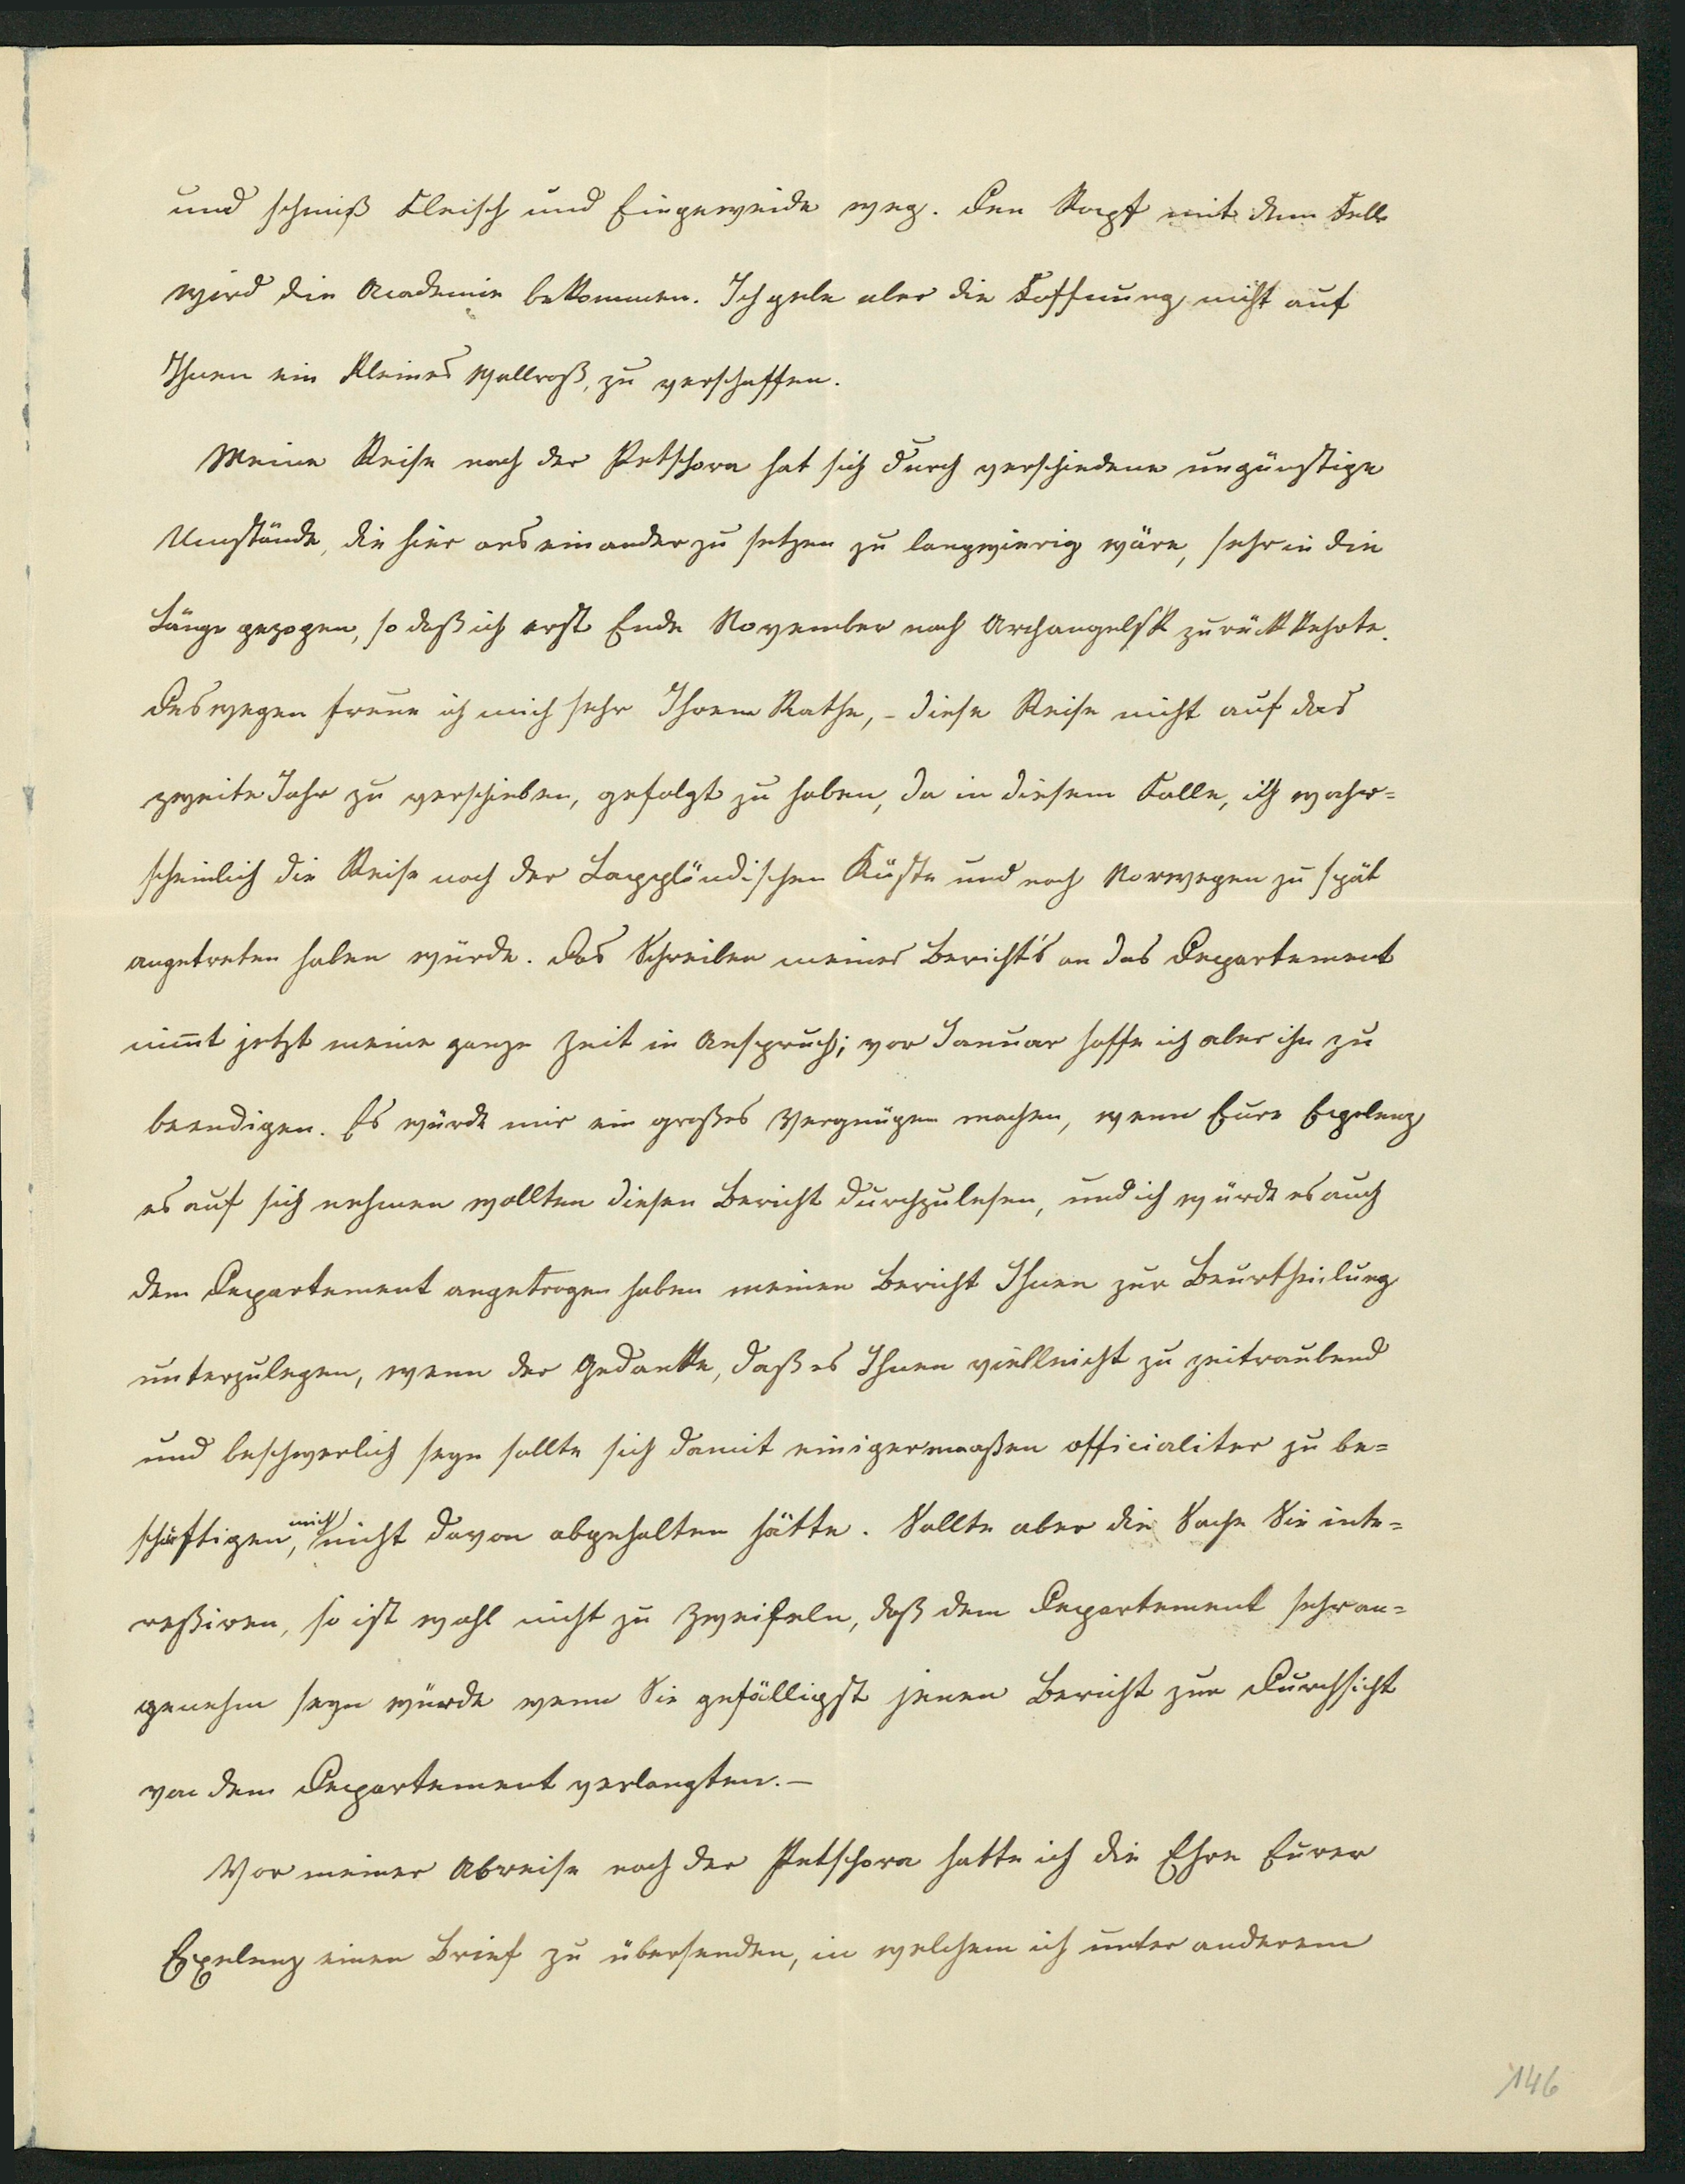 und schmiß Fleisch und Eingeweide weg. Den Kopf mit dem Felle
wird die Academie bekommen. Ich gebe aber die Hoffnung nicht auf
Ihnen ein kleines Wallroß, zu verschaffen.
Meine Reise nach der Petschora hat sich durch verschiedene ungünstige
Umstände, die hier aus einander zu setzen zu langwierig wäre, sehr in die
Länge gezogen, so daß ich erst Ende November nach Archangelsk zurückkehrte.
Deswegen freue ich mich sehr Ihrem Rathe, – diese Reise nicht auf das
zweite Jahr zu verschieben, gefolgt zu haben, da in diesem Falle, ich wahr=
scheinlich die Reise nach der Lappländischen Küste und nach Norwegen zu spät
angetreten haben würde. Das Schreiben meines Bericht's an das Departement
nim̄t jetzt meine ganze Zeit in Anspruch; vor Januar hoffe ich aber ihn zu
beendigen. Es würde mir ein großes Vergnügen machen, wenn Eure Exzelenz
es auf sich nehmen wollten diesen Bericht durchzulesen, und ich würde es auch
dem Departement angetragen haben meinen Bericht Ihnen zur Beurtheilung
unterzulegen, wenn der Gedanke, daß es Ihnen vielleicht zu zeitraubend
und beschwerlich seyn sollte sich damit einigermaaßen officialiter zu be=
schäftigen, mich nicht davon abgehalten hätte. Sollte aber die Sache Sie inte=
reßiren, so ist wohl nicht zu zweifeln, daß dem Departement sehr an=
genehm seyn würde wenn Sie gefälligst jenen Bericht zur Durchsicht
von dem Departement verlangten.–
Vor meiner Abreise nach der Petschora hatte ich die Ehre Eurer
Exzelenz einen Brief zu übersenden, in welchem ich unter anderem
146